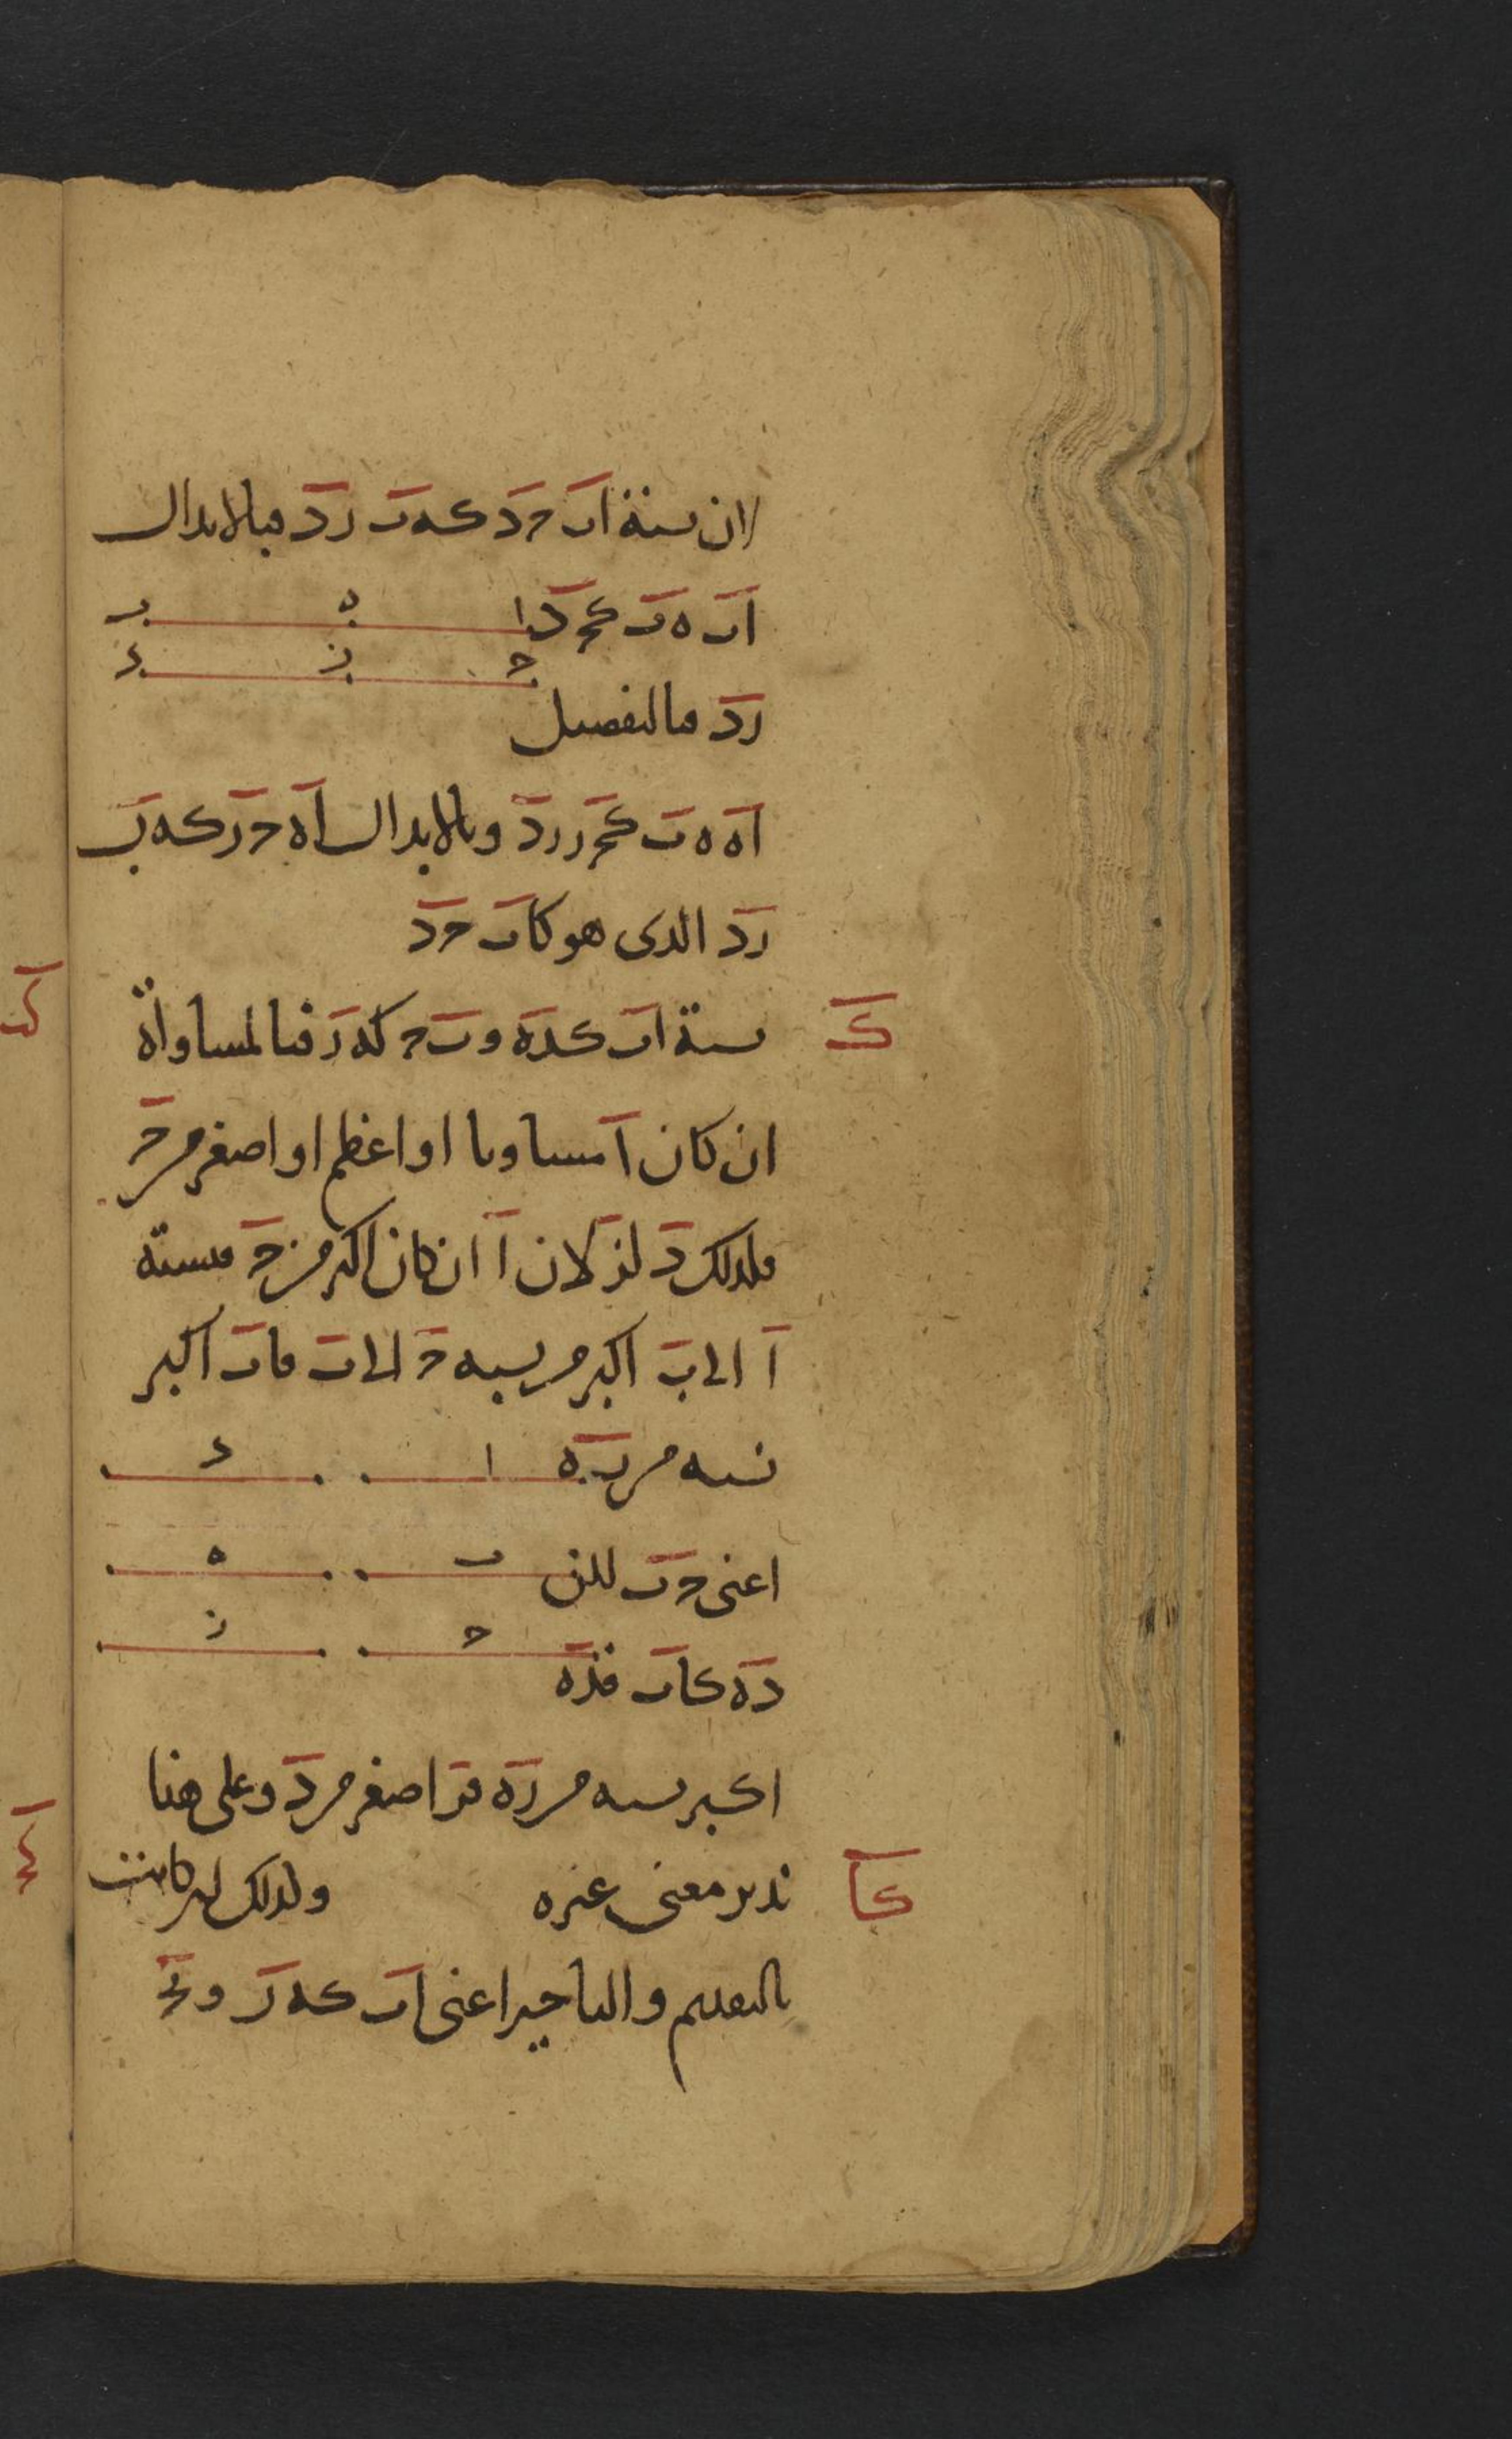 لان نسبة اب حد كه ب رد فبالابدال
اب ه ب كحد ا ه ب
ح ز د
رد فبالتفصيل
اه ه ب كحر رد وبالابدال اه حر كه ب
رد الذى هو كاب حد
ك نسبة اب كده و ب ح كه ر فبالمساواة
ان كان ا مساويا او اعظم او اصغر من ح
فلذلك د لز لان ا ان كان اكبر من ح فنسبة
ا الى ب اكبر من نسبه ح الى ب فاب اكبر
نسبه من ا د
اعنى ح ب لكن ب ه
ح ز
ده كاب فده
اكبر نسبه من ره فر اصغر من د وعلى هذا
كا تدبر معنى غيره ولذلك كانت
بالتقديم والتاخير اعنى اب كه ر و